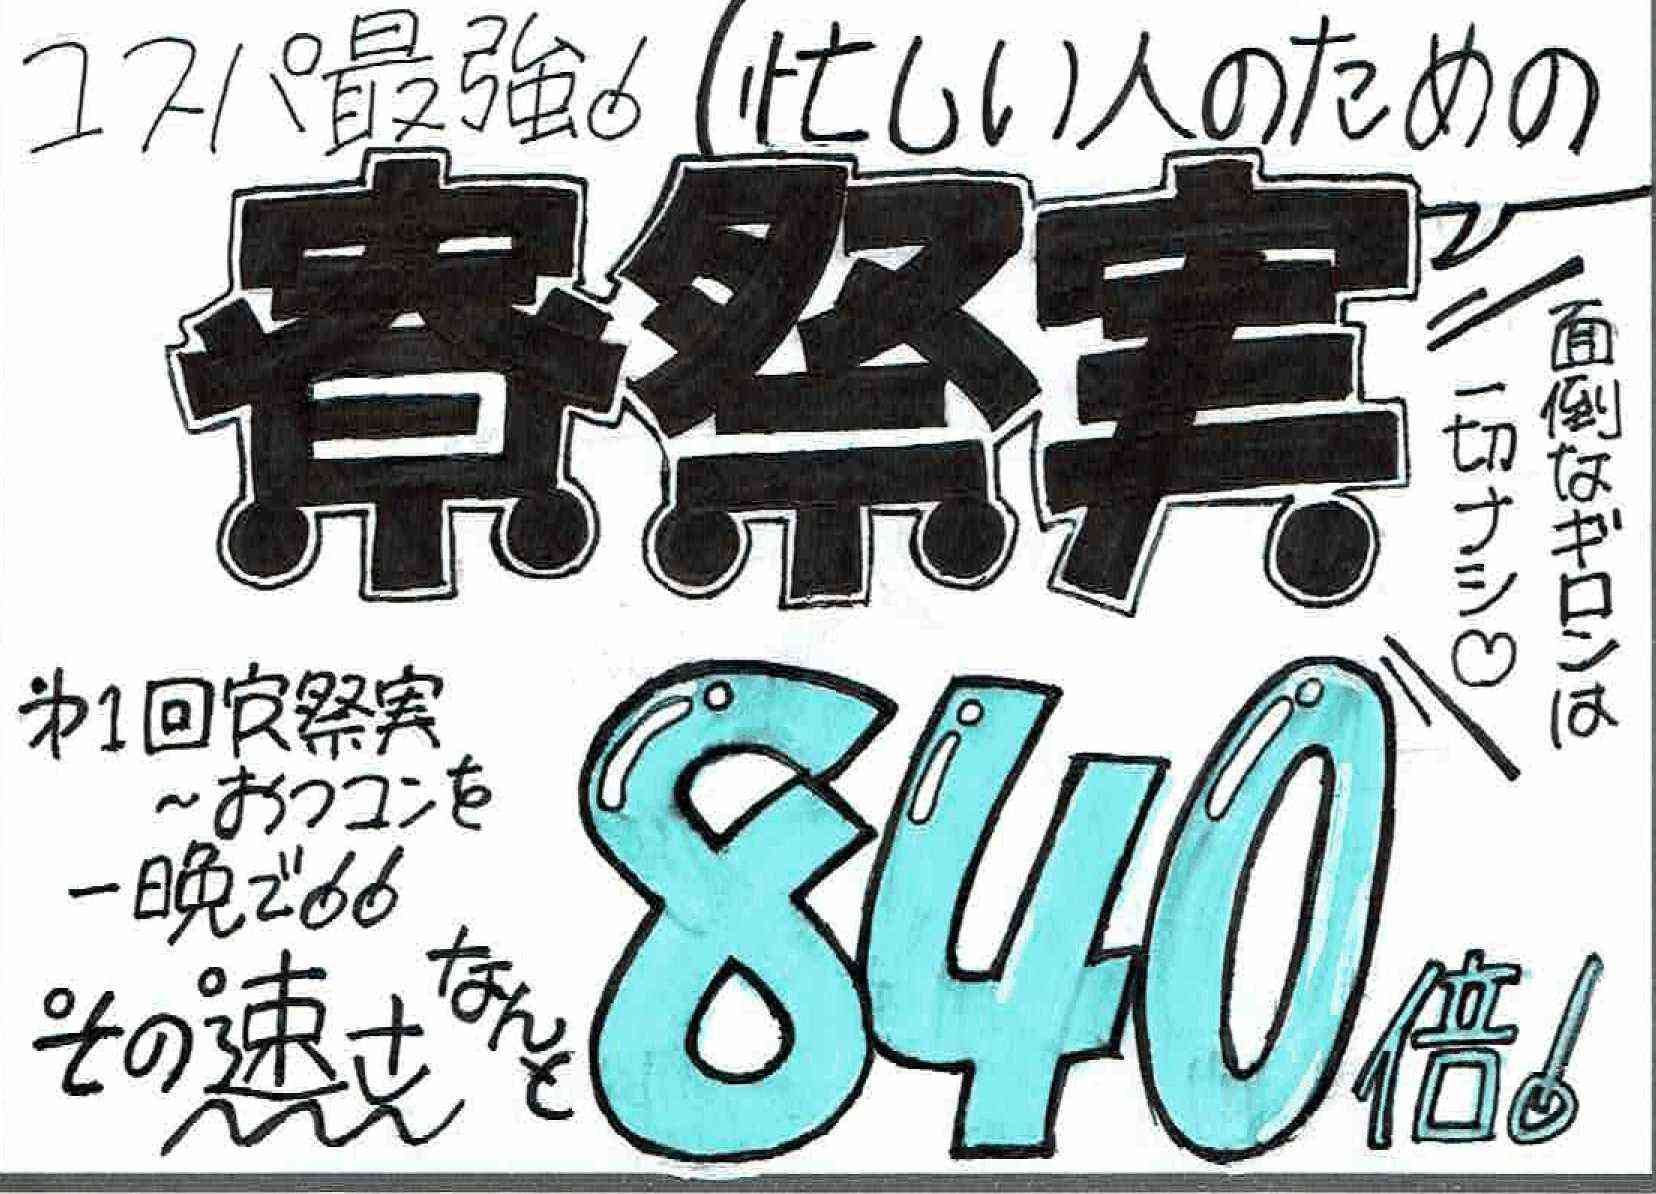 コスパ最強!
(忙しい人のための)
寮祭実
面倒なギロンは
一切ナシ♡
第1回寮祭実
~おつコンを
一晩で!!
その速さ
なんと
840倍!